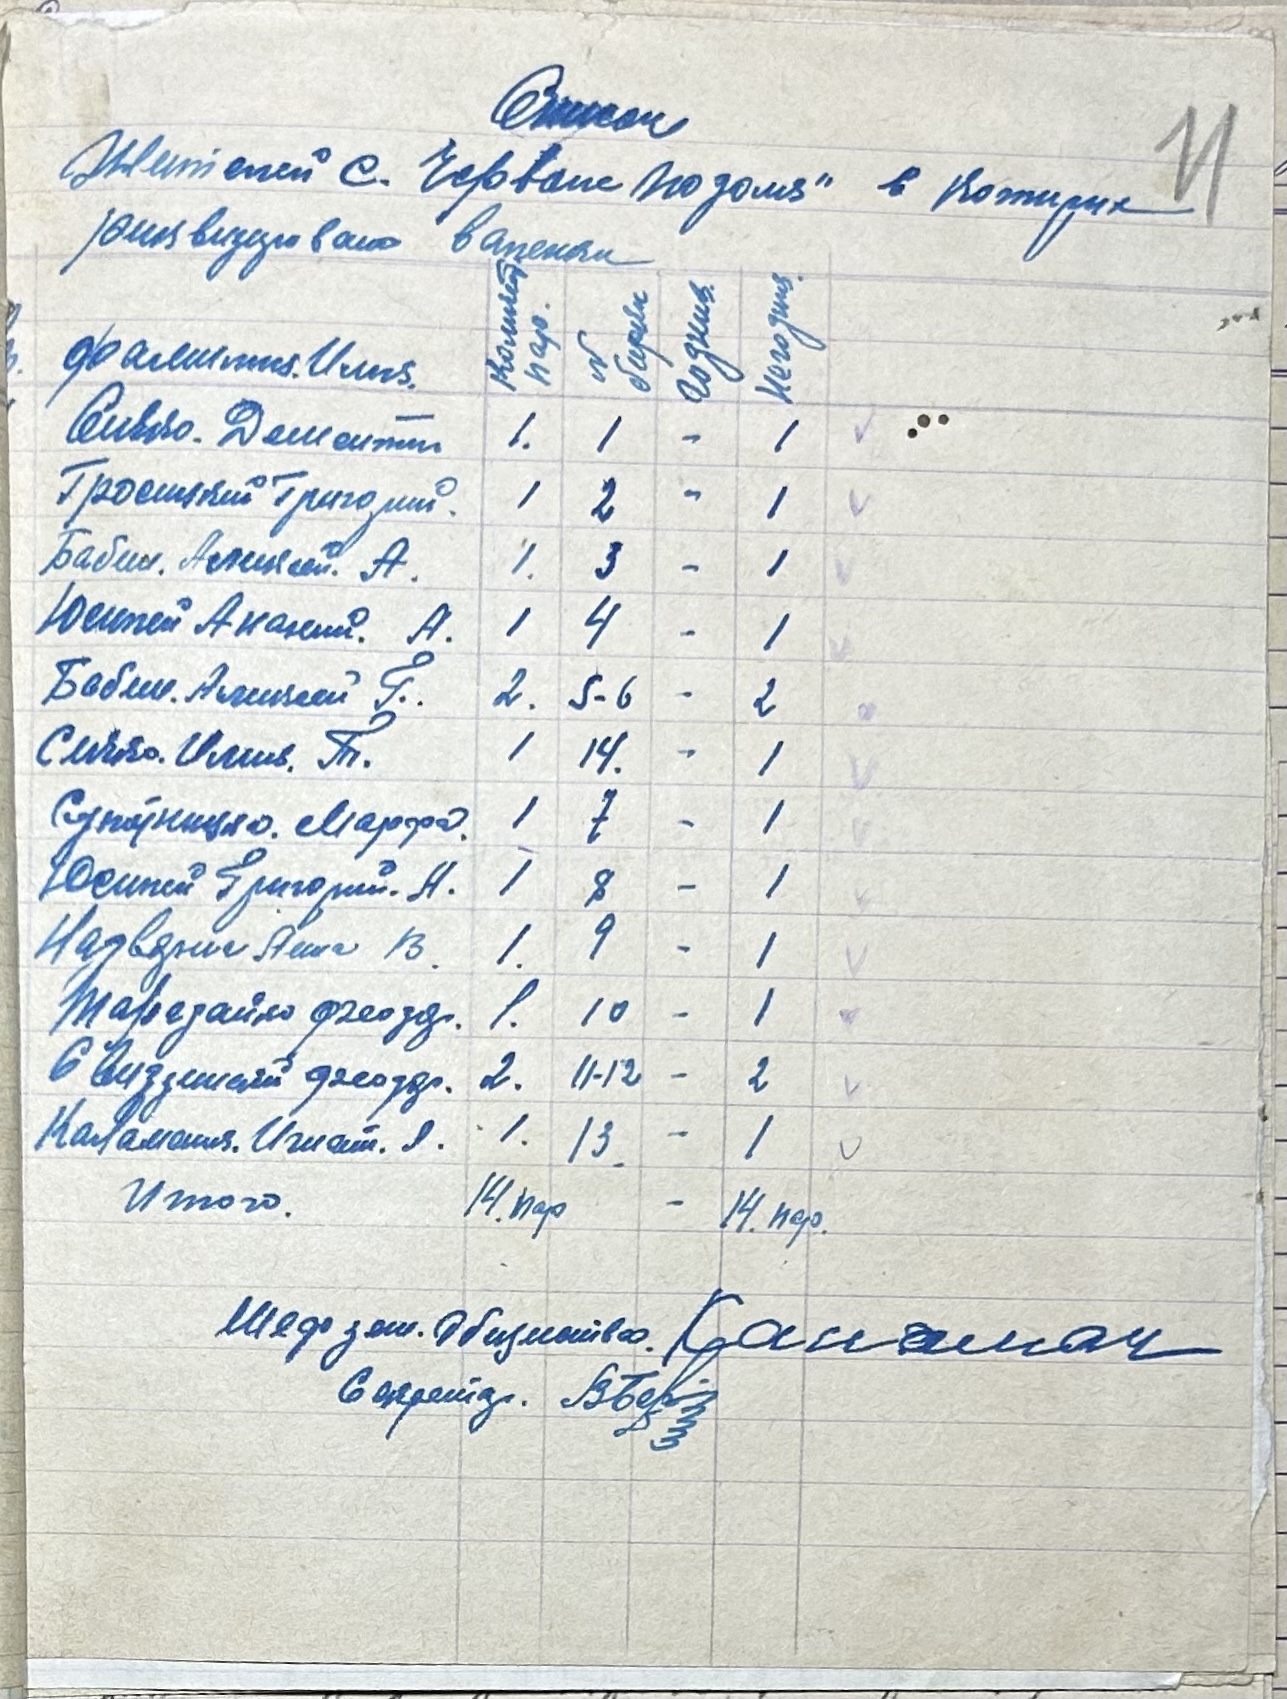 Список
11
Жителей с. "Червоне Подоля" в которых
реквизировано валенки
Фамилия. Имя. Количест. пар. № бирки Годных. Негодных.
Сивко. Дементий 1. 1 - 1
Троецкий Григорий. 1 2 - 1
Бабич. Алексей. А. 1. 3 - 1
Юситей Ананий. А. 1 4 - 1
Бабич. Алексей Г. 2. 5-6 - 2
Сивко. Илия. Т. 1 14. - 1
Супрунцко. Марфа. 1 7 - 1
Юситей Григорий. Н. 1 8 - 1
Надведня Анна В. 1. 9 - 1
Феодор. 1. 10 - 1
Свидзинский Феодор. 2. 11-12 - 2
Каламаня. Игнат. Я. 1. 13. - 1
Итого. 14. пар - 14. пар.
Шеф зем. Общества.
Секретар.